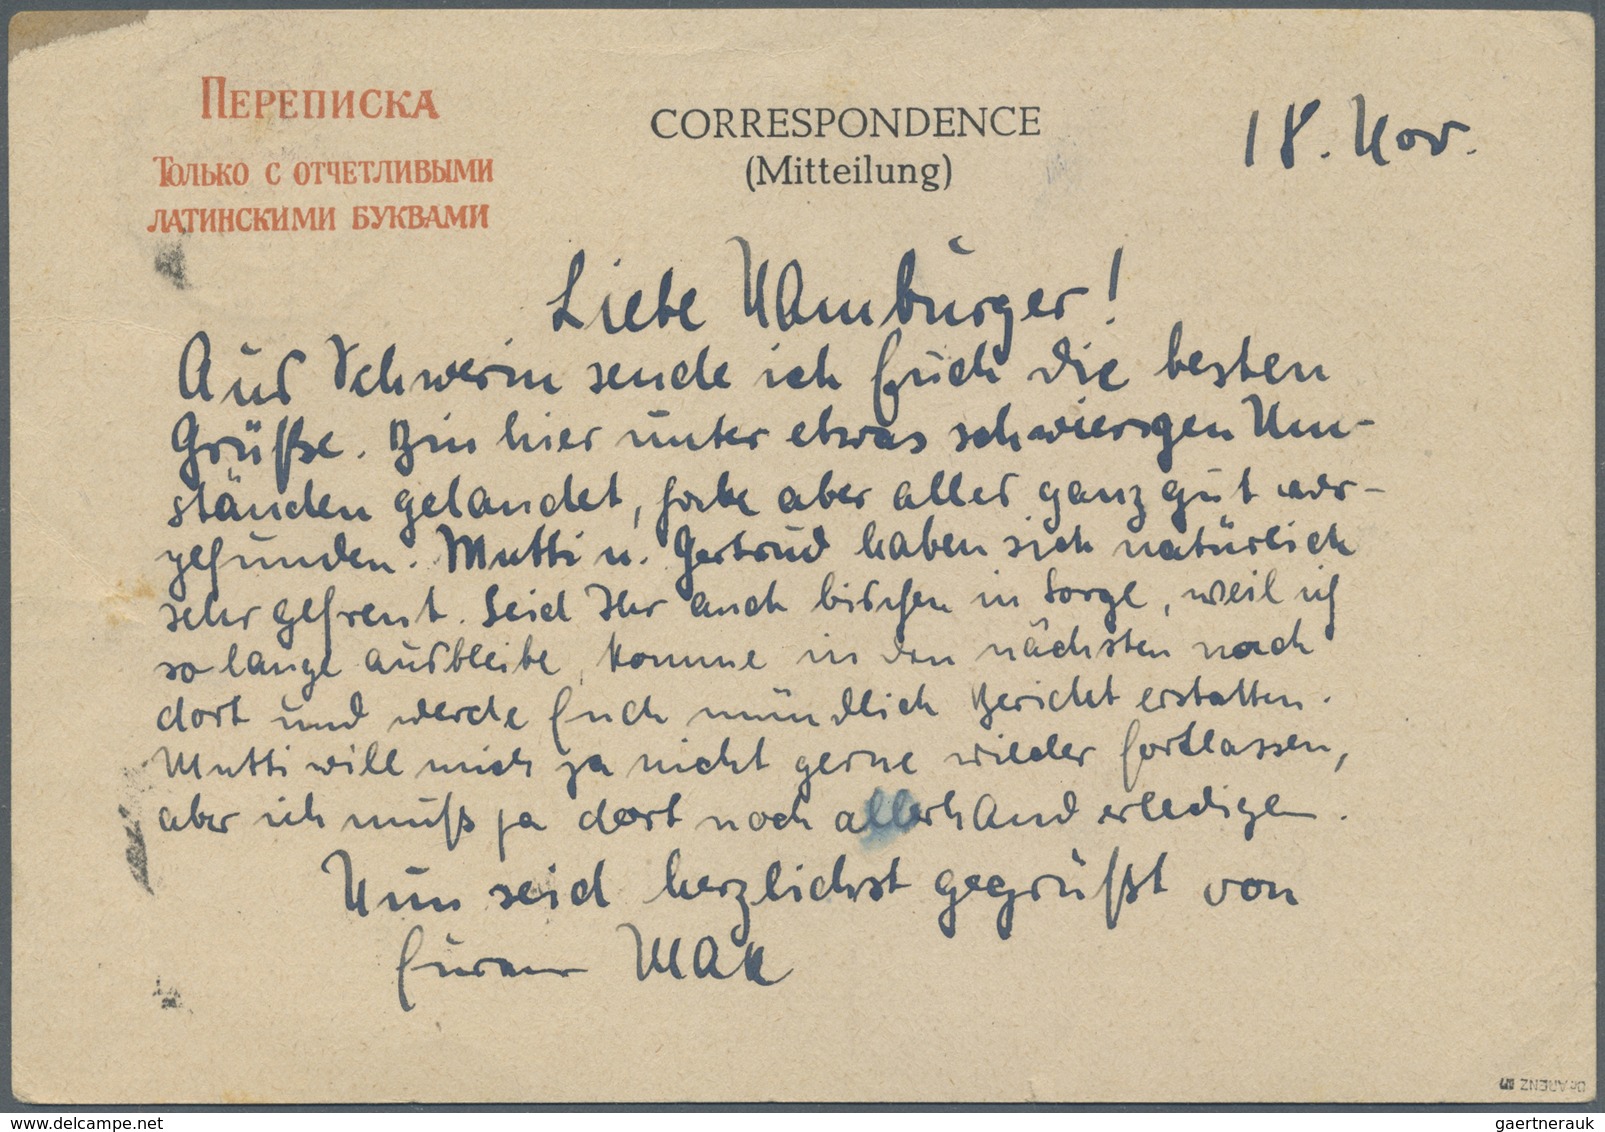 ПЕРЕПИСКА
ТОЛЬКО С ОТЧЕТЛИВЫМИ
ЛАТИНСКИМИ БУКВАМИ
CORRESPONDENCE
(Mitteilung)
18. Nov.
Liebe Hamburger!
Aus Schwerin sende ich Euch die besten
Grüße. Bin hier unter etwas schwierigen Um-
ständen gelandet, habe aber alles ganz gut vor-
gefunden. Mutti u. Gertrud haben sich natürlich
sehr gefreut. Seid Ihr auch bischen in Sorge, weil ich
so lange ausbleibe, komme in den nächsten nach
dort und werde Euch mündlich Bericht erstatten.
Mutti will mich ja nicht gerne wieder fortlassen,
aber ich muß ja dort noch allerhand erledigen.
Nun seid herzlichst gegrüßt von
Eurem Max
Dr ARENZ
delcampe.net
gaertnerauk